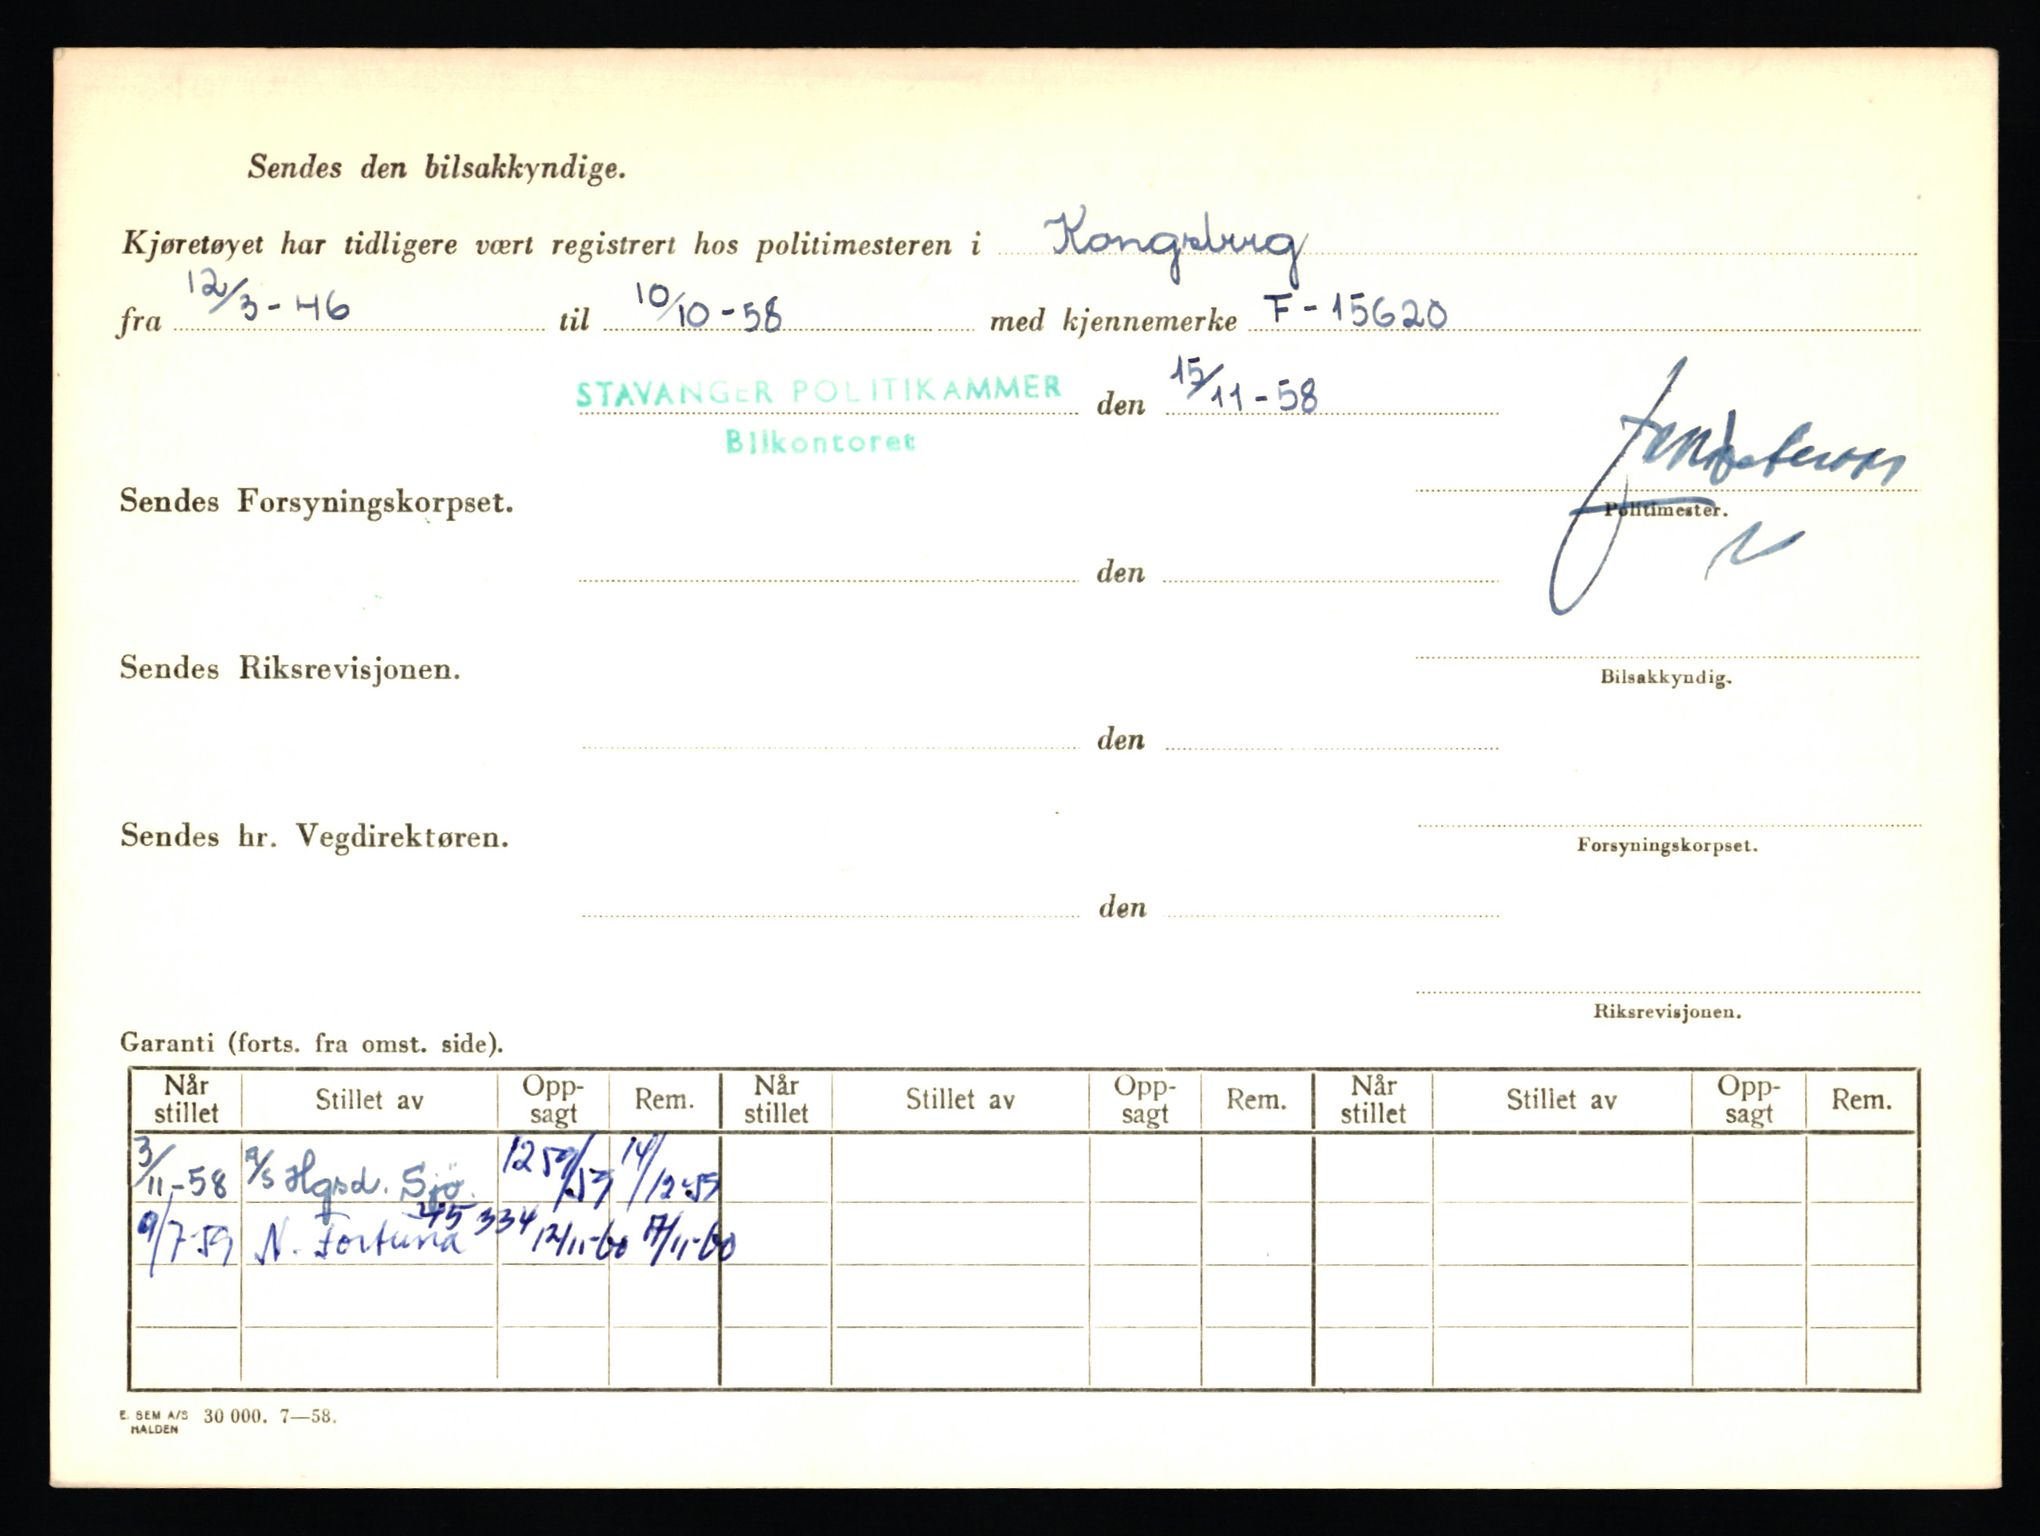 Sendes den bilsakkyndige.
Kjøretøyet har tidligere vært registrert hos politimesteren i Kongsberg
fra 12/3-46 til 10/10-58 med kjennemerke F-15620
STAVANGER POLITIKAMMER den 15/11-58
Bilkontoret
Sendes Forsyningskorpset.
Politimester.
den
Sendes Riksrevisjonen.
Bilsakkyndig.
den
Sendes hr. Vegdirektøren.
Forsyningskorpset.
den
Riksrevisjonen.
Garanti (forts. fra omst. side).
Når stillet Stillet av Opp-sagt Rem. Når stillet Stillet av Opp-sagt Rem. Når stillet Stillet av Opp-sagt Rem.
3/11-58 A/S Hgsd. Sjö. 14/12-59
9/7-59 N. Fortuna 245 334 12/11-60 17/11-60
E. SEM A/S 30 000. 7—58.
HALDEN